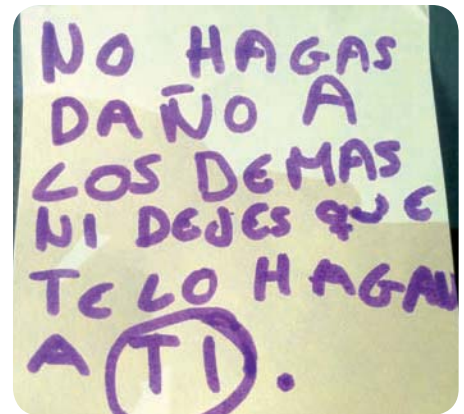 NO HAGAS
DAÑO A
LOS DEMAS
NI DEJES QUE
TE LO HAGAN
A TI.